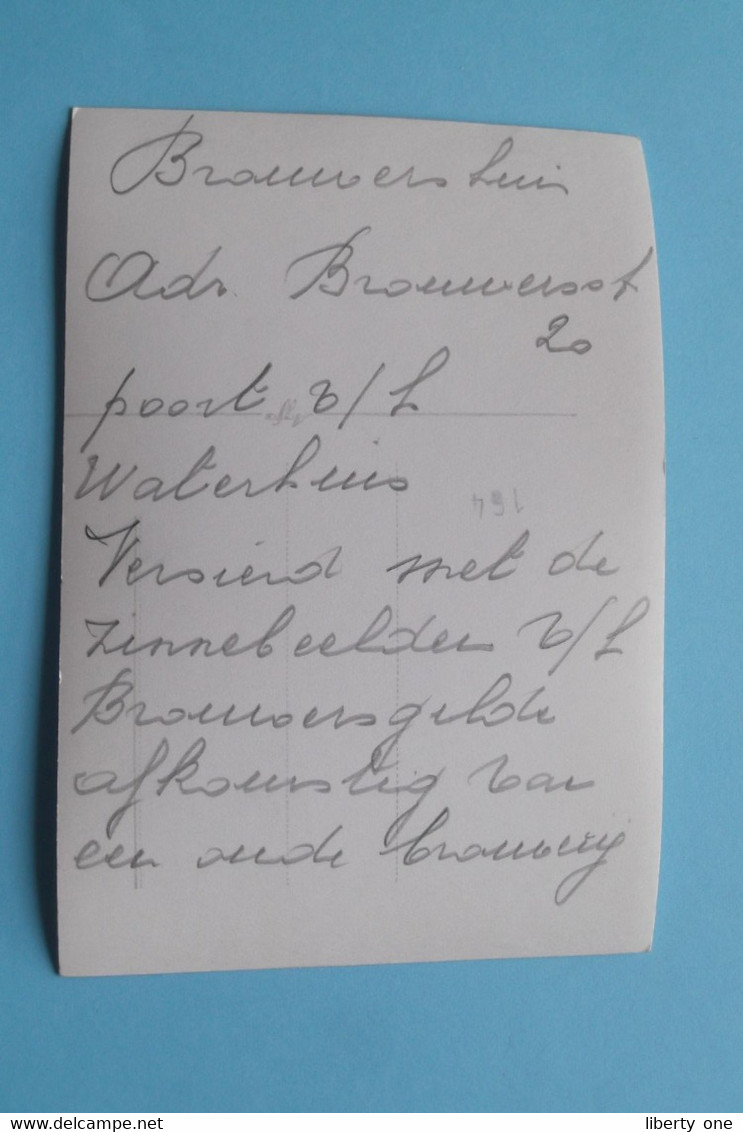 Brouwershuis
Adr. Brouwersst
20
poort v/h
Waterhuis
164
Versierd met de
zinnebeelden v/h
Brouwersgilde
afkomstig van
een oude brouwerij
delcampe.net
liberty one